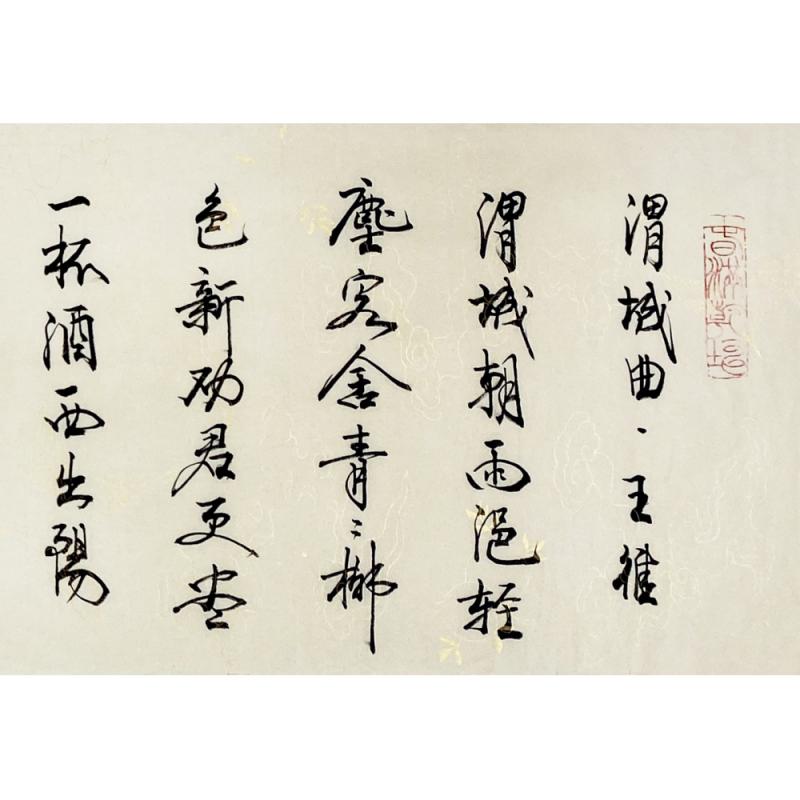 渭城曲、王維
渭城朝雨浥轻
塵客舍青〻柳
色新劝君更尽
一杯酒西出陽